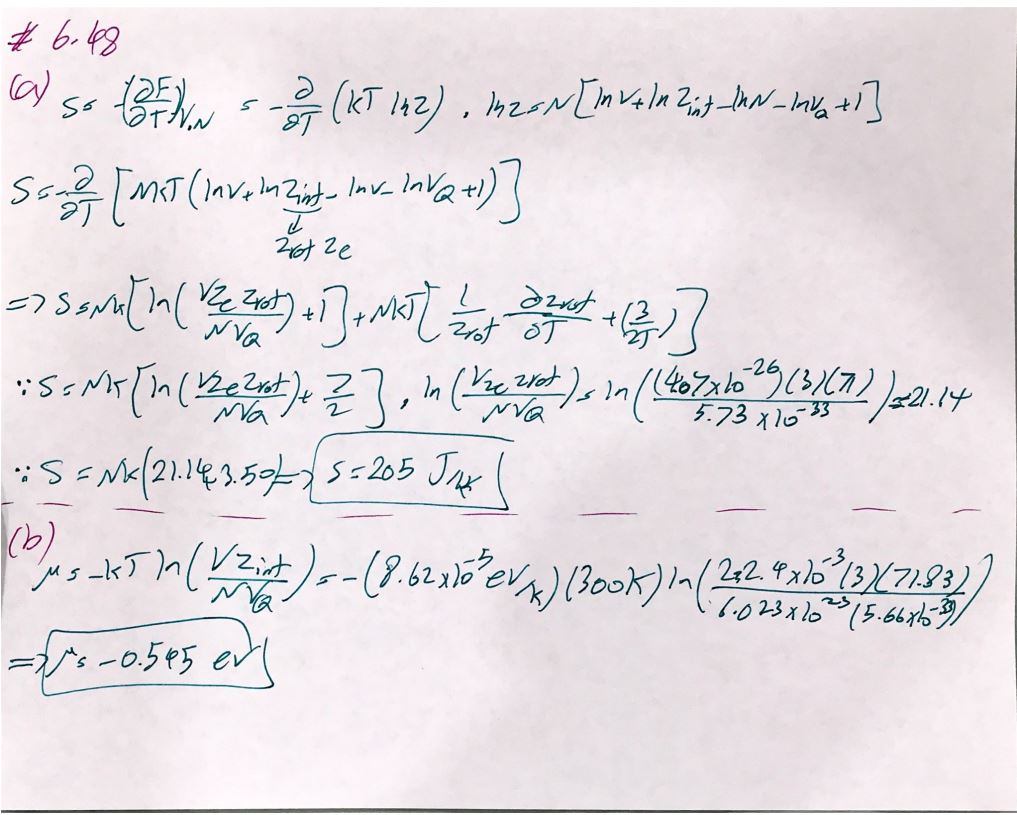 # 6.48
(a) S = -(∂F/∂T)V,N = -∂/∂T (kT ln Z) , ln Z = N [ln V + ln Zint - ln N - ln VQ + 1]
S = -∂/∂T [NkT (ln V + ln Zint - ln N - ln VQ + 1)]
↓
Zrot Ze
=> S = Nk [ln (V Ze Zrot / N VQ) + 1] + NkT [1/Zrot ∂Zrot/∂T + (3/2T)]
∵ S = Nk [ln (V Ze Zrot / N VQ) + 7/2] , ln (V Ze Zrot / N VQ) = ln ((4.07 x 10^-26)(3)(71) / 5.73 x 10^-33) ≈ 21.14
∵ S = Nk (21.14 + 3.50) => S = 205 J/K
(b)
μ = -kT ln (V Zint / N VQ) = -(8.62 x 10^-5 eV/K)(300K) ln (22.4 x 10^-3 (3)(71.83) / 6.023 x 10^23 (5.66 x 10^-33))
=> μ = -0.545 eV